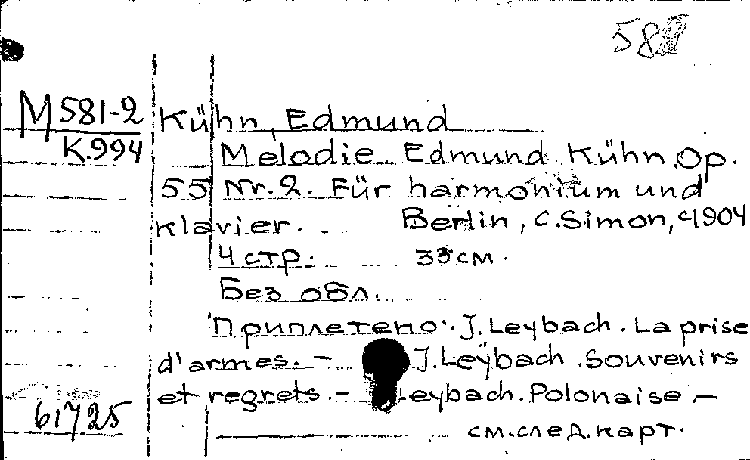 58
M 581-2
K.994
Kühn, Edmund
Melodie Edmund Kühn, Op.
55 Nr. 2. Für harmonium und
klavier. Berlin, C. Simon, c1904
4 стр. 33 см.
Без обл.
Приплетено: J. Leybach. La prise
d'armes. – J. Leybach. Souvenirs
et regrets. – Leybach. Polonaise. –
61725
см. след. карт.